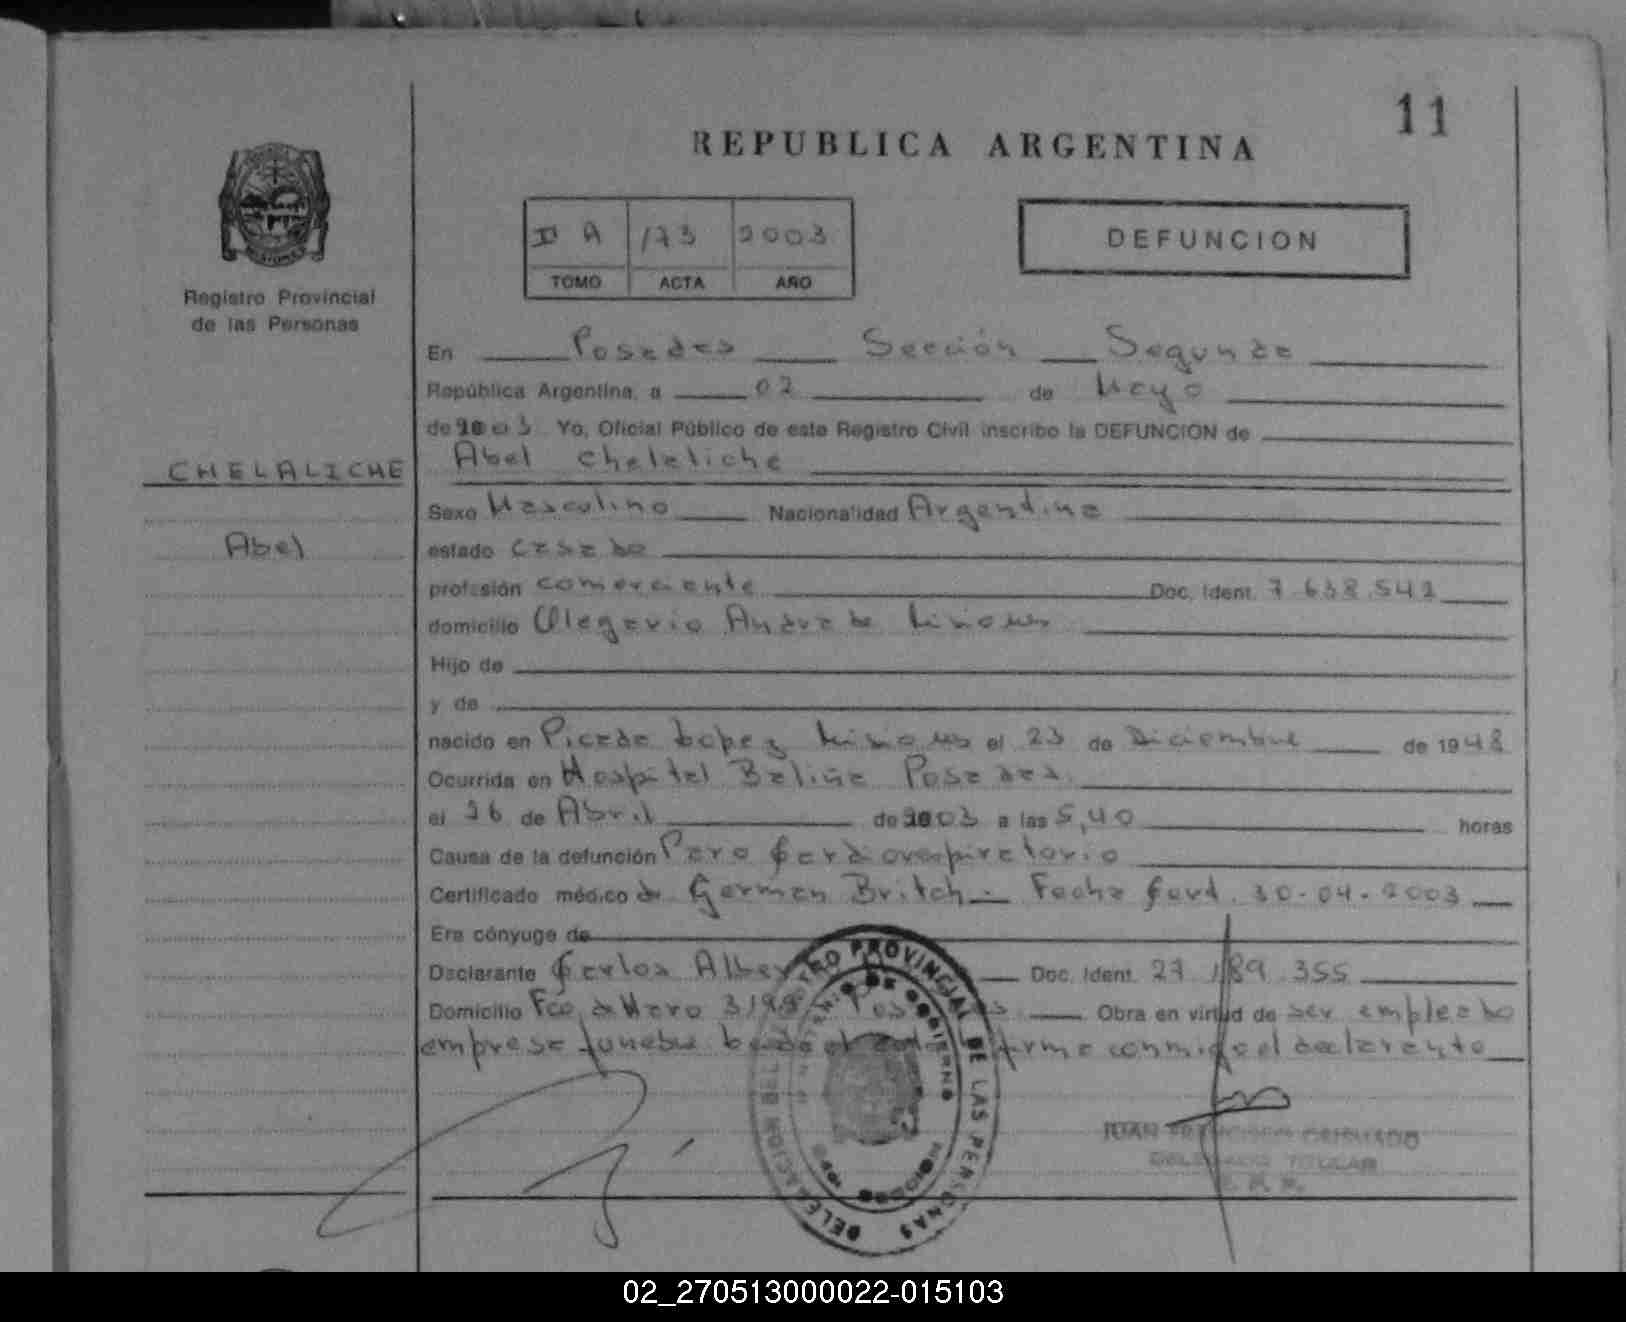 11
REPUBLICA ARGENTINA
II A 173 2003
TOMO ACTA AÑO
DEFUNCION
Registro Provincial
de las Personas
CHELALICHE
Abel
En Posadas Sección Segunda
República Argentina, a 02 de Mayo
de 2003 Yo, Oficial Público de este Registro Civil inscribo la DEFUNCION de
Abel Chelaliche
Sexo Masculino Nacionalidad Argentina
estado casado
profesión comerciante Doc. Ident. 7.638.542
domicilio Olegario Andrade Misiones
Hijo de
y de
nacido en Picada Lopez Misiones el 23 de Diciembre de 1948
Ocurrida en Hospital Baliña Posadas
el 26 de Abril de 2003 a las 5,40 horas
Causa de la defunción Paro Cardiorespiratorio
Certificado médico dr. German Britch - Fecha Cert. 30-04-2003
Era cónyuge de
Declarante Carlos Doc. Ident. 27.189.355
Domicilio Fco. de Haro Obra en virtud de ser empleado
empresa funebre firma conmigo el declarante
REGISTRO PROVINCIAL DE LAS PERSONAS
MINISTERIO DE GOBIERNO
MISIONES
JUAN FRANCISCO
DELEGADO TITULAR
R. P. P.
02_270513000022-015103